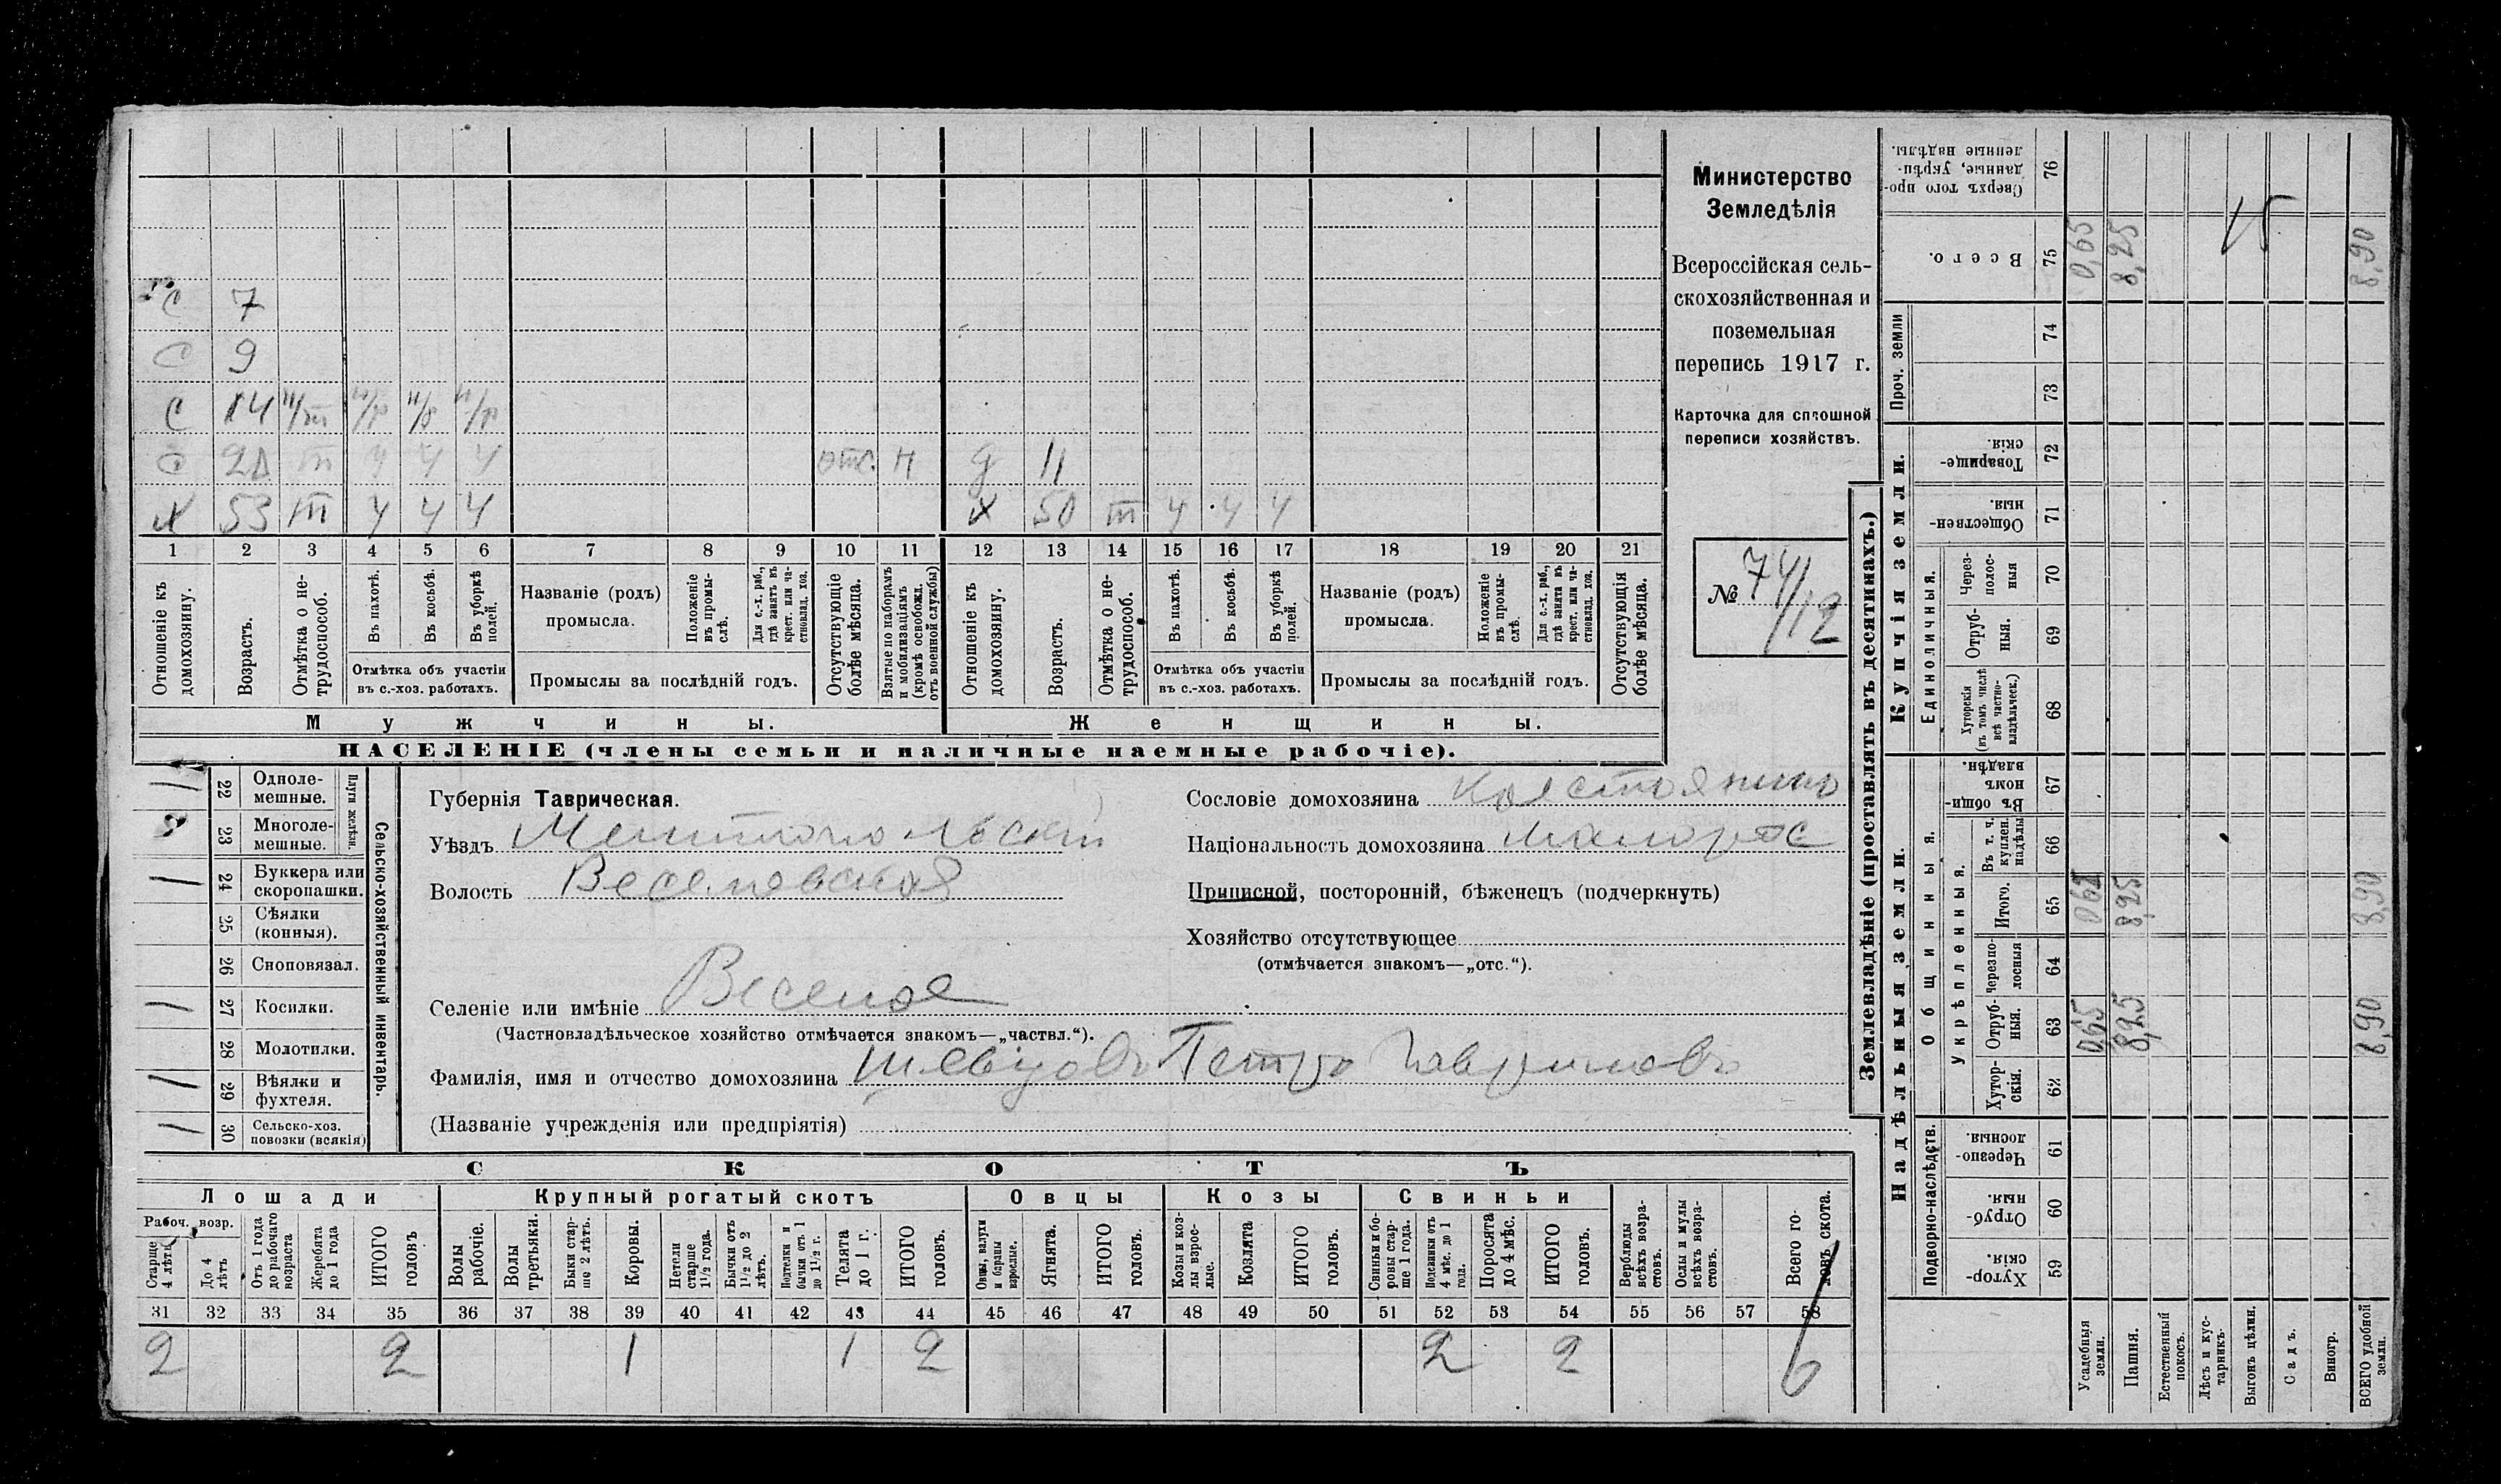 Министерство
Земледѣлія
Всероссійская сель-
скохозяйственная и
поземельная
перепись 1917 г.
Карточка для сплошной
переписи хозяйствъ.
№ 74/12
С 7
С 9
С 14 н/т н/р н/р н/р
С 20 т ч ч ч отс. н д 11
х 53 т ч ч ч х 50 т ч ч ч
1 2 3 4 5 6 7 8 9 10 11 12 13 14 15 16 17 18 19 20 21
Отношеніе къ домохозяину.
Возрастъ.
Отмѣтка о не-трудоспособ.
Въ пахотѣ.
Въ косьбѣ.
Въ уборкѣ полей.
Отмѣтка объ участіи
въ с.-хоз. работахъ.
Названіе (родъ)
промысла.
Положеніе въ промы-слѣ.
Для с.-х. раб., гдѣ занятъ въ крест. или ча-стновлад. хоз.
Промыслы за послѣдній годъ.
Отсутствующіе болѣе мѣсяца.
Взятые по наборамъ и мобилизаціямъ (кромѣ освобожд. отъ военной службы)
Отношеніе къ домохозяину.
Возрастъ.
Отмѣтка о не-трудоспособ.
Въ пахотѣ.
Въ косьбѣ.
Въ уборкѣ полей.
Отмѣтка объ участіи
въ с.-хоз. работахъ.
Названіе (родъ)
промысла.
Положеніе въ промы-слѣ.
Для с.-х. раб., гдѣ занята въ крест. или ча-стновлад. хоз.
Промыслы за послѣдній годъ.
Отсутствующія болѣе мѣсяца.
Мужчины. Женщины.
НАСЕЛЕНІЕ (члены семьи и наличные наемные рабочіе).
Сельско-хозяйственный инвентарь.
Плуги желѣзн.
22 Одноле-мешные. 1
23 Многоле-мешные.
24 Буккера или скоропашки. 1
25 Сѣялки (конныя).
26 Сноповязал.
27 Косилки. 1
28 Молотилки.
29 Вѣялки и фухтеля. 1
30 Сельско-хоз. повозки (всякія) 1
Губернія Таврическая.
Уѣздъ Мелитопольскій
Волость Веселовская
Селеніе или имѣніе Веселое
(Частновладѣльческое хозяйство отмѣчается знакомъ—„частвл.“).
Фамилія, имя и отчество домохозяина Шевцовъ Петро Гавриловъ
(Названіе учрежденія или предпріятія)
Сословіе домохозяина
Національность домохозяина малорос
Приписной, посторонній, бѣженецъ (подчеркнуть)
Хозяйство отсутствующее
(отмѣчается знакомъ—„отс.“).
СКОТЪ
Лошади Крупный рогатый скотъ Овцы Козы Свиньи
Рабоч. возр.
Старше 4 лѣтъ
До 4 лѣтъ
Отъ 1 года до рабочаго возраста
Жеребята до 1 года
ИТОГО головъ
Волы рабочіе.
Волы третьяки.
Быки стар-ше 2 лѣтъ.
Коровы.
Нетели старше 1½ года.
Бычки отъ 1½ до 2 лѣтъ.
Подтелки и бычки отъ 1 до 1½ г.
Телята до 1 г.
ИТОГО головъ.
Овцы, валухи и бараны взрослые.
Ягнята.
ИТОГО головъ.
Козы и коз-лы взрос-лые.
Козлята
ИТОГО головъ.
Свиньи и бо-ровы стар-ше 1 года.
Подсвинки отъ 4 мѣс. до 1 года.
Поросята до 4 мѣс.
ИТОГО головъ.
Верблюды всѣхъ возра-стовъ.
Ослы и мулы всѣхъ возра-стовъ.
Всего го-ловъ скота.
31 32 33 34 35 36 37 38 39 40 41 42 43 44 45 46 47 48 49 50 51 52 53 54 55 56 57 58
2 2 1 1 2 2 2 6
Землевладѣніе (проставлять въ десятинахъ.)
Надѣльныя земли. Купчія земли. Проч. земли
Подворно-наслѣдств.
Общинныя.
Укрѣпленныя.
Единоличныя.
Хутор-скія. 59
Отруб-ныя. 60
Черезпо-лосныя. 61
Хутор-скія. 62
Отруб-ныя. 63
Черезпо-лосныя 64
Итого. 65
Въ т. ч. куплен. надѣлы 66
Въ общи-номъ владѣн. 67
Хуторскія (въ томъ числѣ всѣ частно-владѣльческ.) 68
Отруб-ныя. 69
Через-полос-ныя 70
Обществен-ныя. 71
Товарище-скія. 72
73
74
Всего. 75
Сверхъ того про-данные, укрѣп-ленные надѣлы. 76
Усадебныя земли. 0,65 0,65
Пашня. 8,25 8,25 8,25
Естественный покосъ.
Лѣсъ и кус-тарникъ.
Выгонъ цѣлин.
Садъ.
Виногр.
ВСЕГО удобной земли. 8,90 8,90 8,90
15